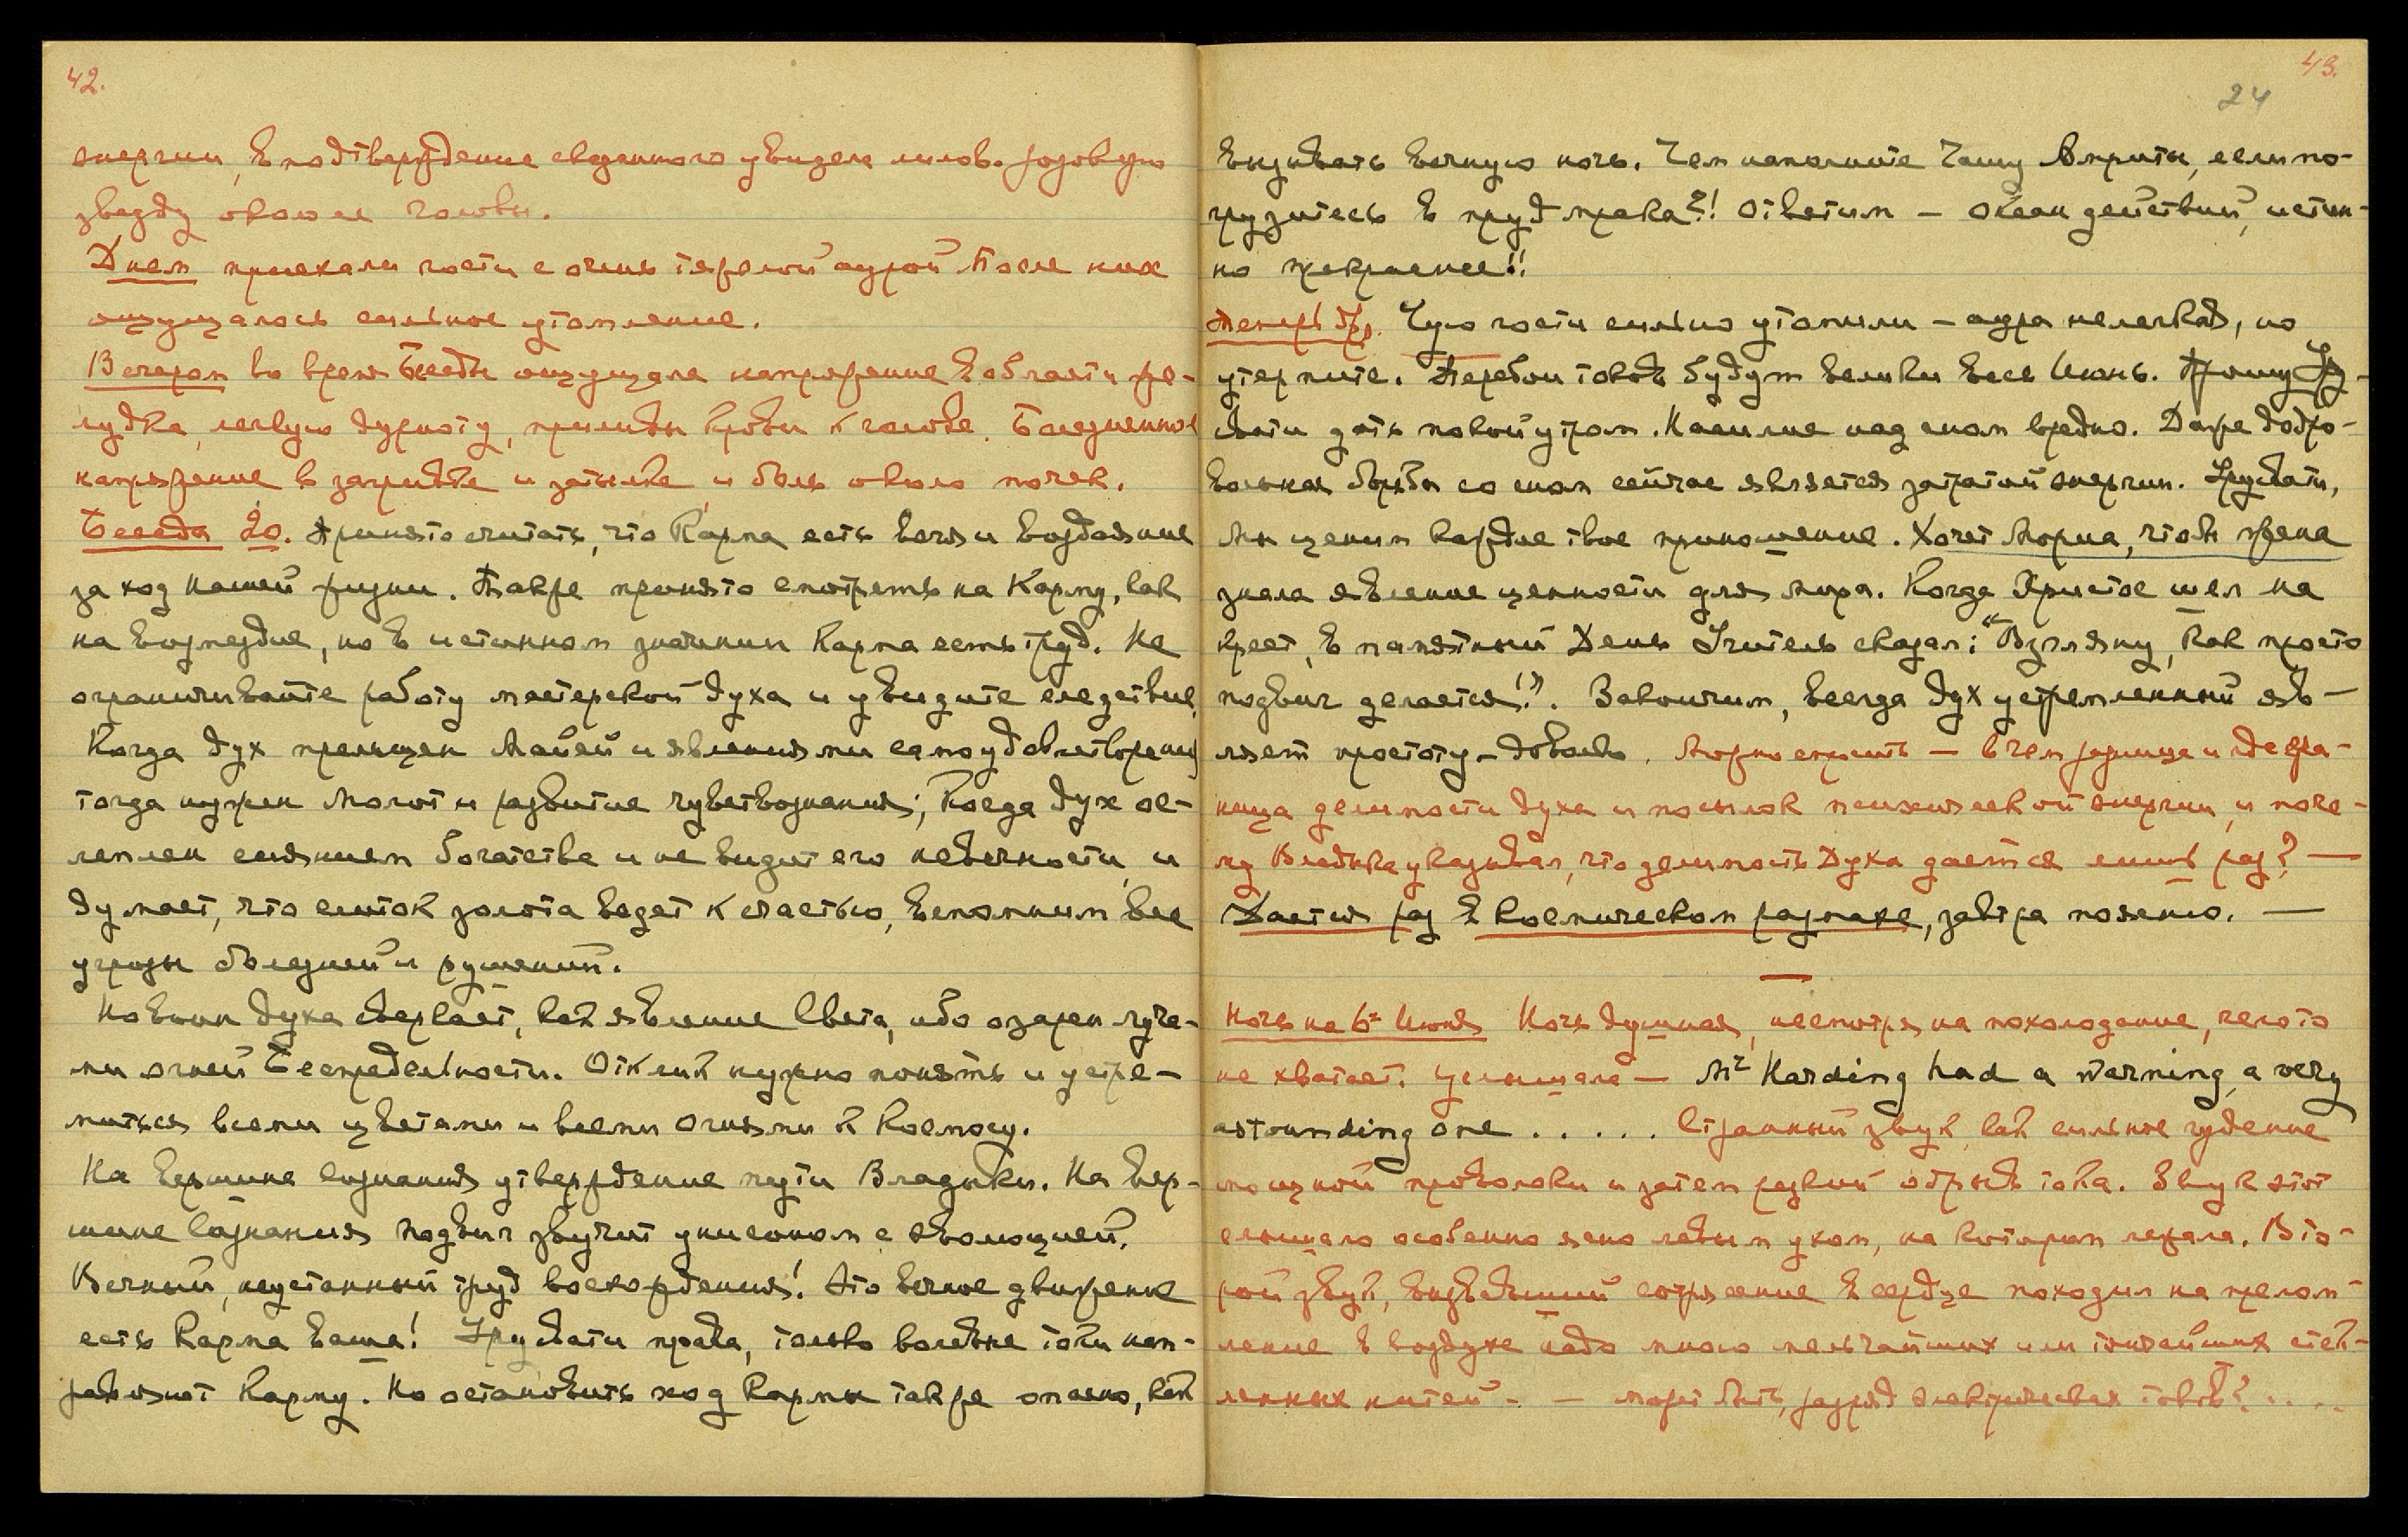 42.
энергии, в подтверждение сказанного увидела лилов. розовую
звезду около ее головы.
Днем приехали гости с очень тяжелой аурой. После них
ощущалось сильное утомление.
Вечером во время Беседы ощущала напряжение в области же-
лудка, легкую дурноту, приливы крови к голове. Болезненное
напряжение в загривке и затылке и боль около почек.
Беседа 20. Принято считать, что Карма есть вечная воздаяние
за ход нашей жизни. Также принято смотреть на Карму, как
на возмездие, но в истинном значении Карма есть труд. Не
ограничивайте работу мастерской духа и увидите следствие.
Когда дух прельщен Майей и явлениями самоудовлетворения
тогда нужен Молот и развитие чувствознания; Когда дух ос-
леплен сиянием богатства и не видит его невечности, и
думает, что слиток золота ведет к счастью, вспомним все
угрозы болезней и рушений.
Но воин духа сверкает, как явление Света, ибо озарен луча-
ми огней Беспредельности. Отклик нужно понять и устре-
миться всеми цветами и всеми огнями к Космосу.
На вершине сознания утверждение пути Владыки. На вер-
шине сознания подвиг звучит унисоном с эволюцией.
Вечный, неустанный труд восхождения! Это вечное движение
есть Карма ваша! Урусвати права, только волевые токи нап-
равляют Карму. Но остановить ход Кармы также опасно, как
43.
24
вызывать вечную ночь. Чем наполните Чашу Амриты, если по-
грузитесь в пруд мрака?! Ответим — океан действий, истин-
но прекраснее!!
Теперь др. Чую гости сильно утомили — аура нелегкая, но
утерпите. Перебои токов будут велики весь Июнь. Прошу Ур-
свати дать покой утром. Насилие над сном вредно. Даже добро-
вольная борьба со сном сейчас является затратой энергии. Урусвати,
Мы ценим каждое твое приношение. Хочет Мориа, чтобы жена
знала явление ценности для мира. Когда Христос шел на
крест, в памятный День Учитель сказал: "Взгляну, как просто
подвиг делается!". Закончим, всегда дух устремленный яв-
ляет простоту — довольно. Можно спросить — в чем разница и где гра-
ница делимости духа и посылок психической энергии, и поче-
му Владыка указывал, что делимость Духа дается лишь раз? —
Дается раз в космическом размахе, завтра поясню. —
Ночь на 6е Июня Ночь душная, несмотря на похолодание, чего то
не хватает. Услышала — Mr Harding had a warning, a very
astounding one ..... Странный звук, как сильное гудение
мощной проволоки и затем резкий обрыв тока. Звук этот
слышала особенно ясно левым ухом, на котором лежала. Вто-
рой звук, вызвавший сотрясение в сердце походил на прелом-
ление в воздухе надо мною мельчайших или тончайших стек-
лянных нитей - — может быть, разряд электрических токов? ....